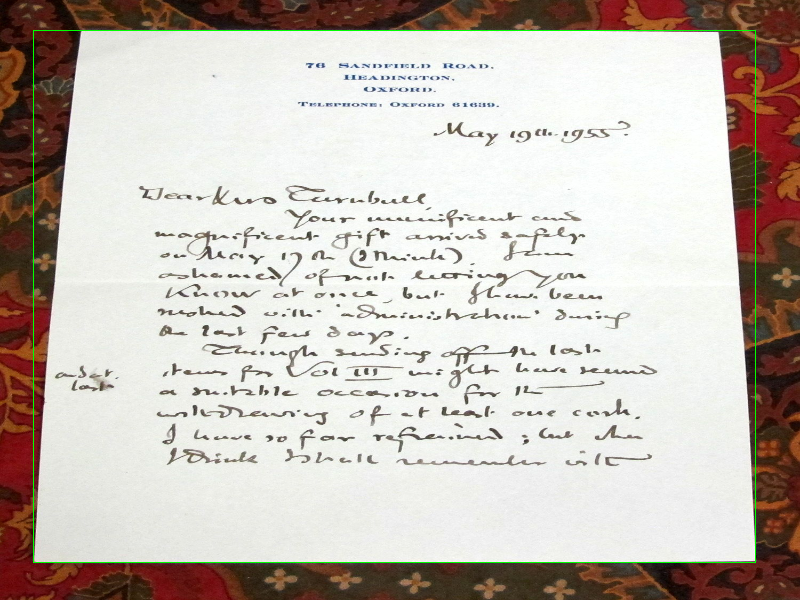 76 SANDFIELD ROAD,
HEADINGTON,
OXFORD.
TELEPHONE: OXFORD 61639.
May 19th. 1955.
Dear Turnbull,
Your munificent and
magnificent gift arrived safely
on May 17th (I think). I am
ashamed of not letting you
know at once, but I have been
rushed with 'administration' during
the last few days.
Though sending off the last
and at
last
items for Vol III might have seemed
a suitable occasion for the
withdrawing of at least one cork,
I have so far refrained; but when
I drink I shall remember with